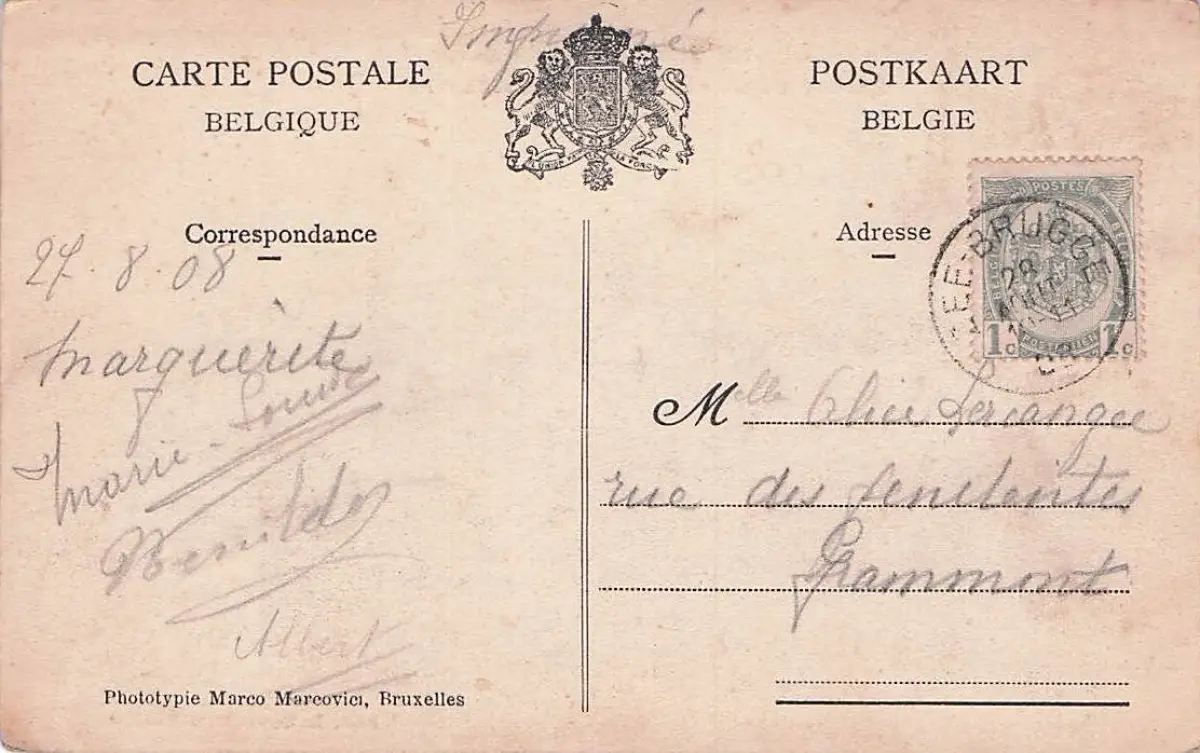 Imprimé
CARTE POSTALE
BELGIQUE
POSTKAART
BELGIE
L'UNION FAIT LA FORCE
Correspondance
27.8.08
Marguerite
Marie-Louise
Albert
Phototypie Marco Marcovici, Bruxelles
Adresse
POSTES
1c 1c
ZEE-BRUGGE
AOUT
08
Mlle
rue des Penitentes
Grammont